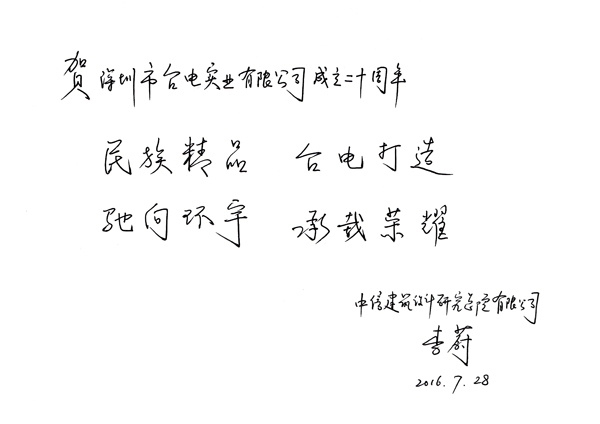 贺深圳市台电实业有限公司成立二十周年
民族精品 台电打造
驰向环宇 承载荣耀
中信建筑设计研究总院有限公司
李蔚
2016.7.28